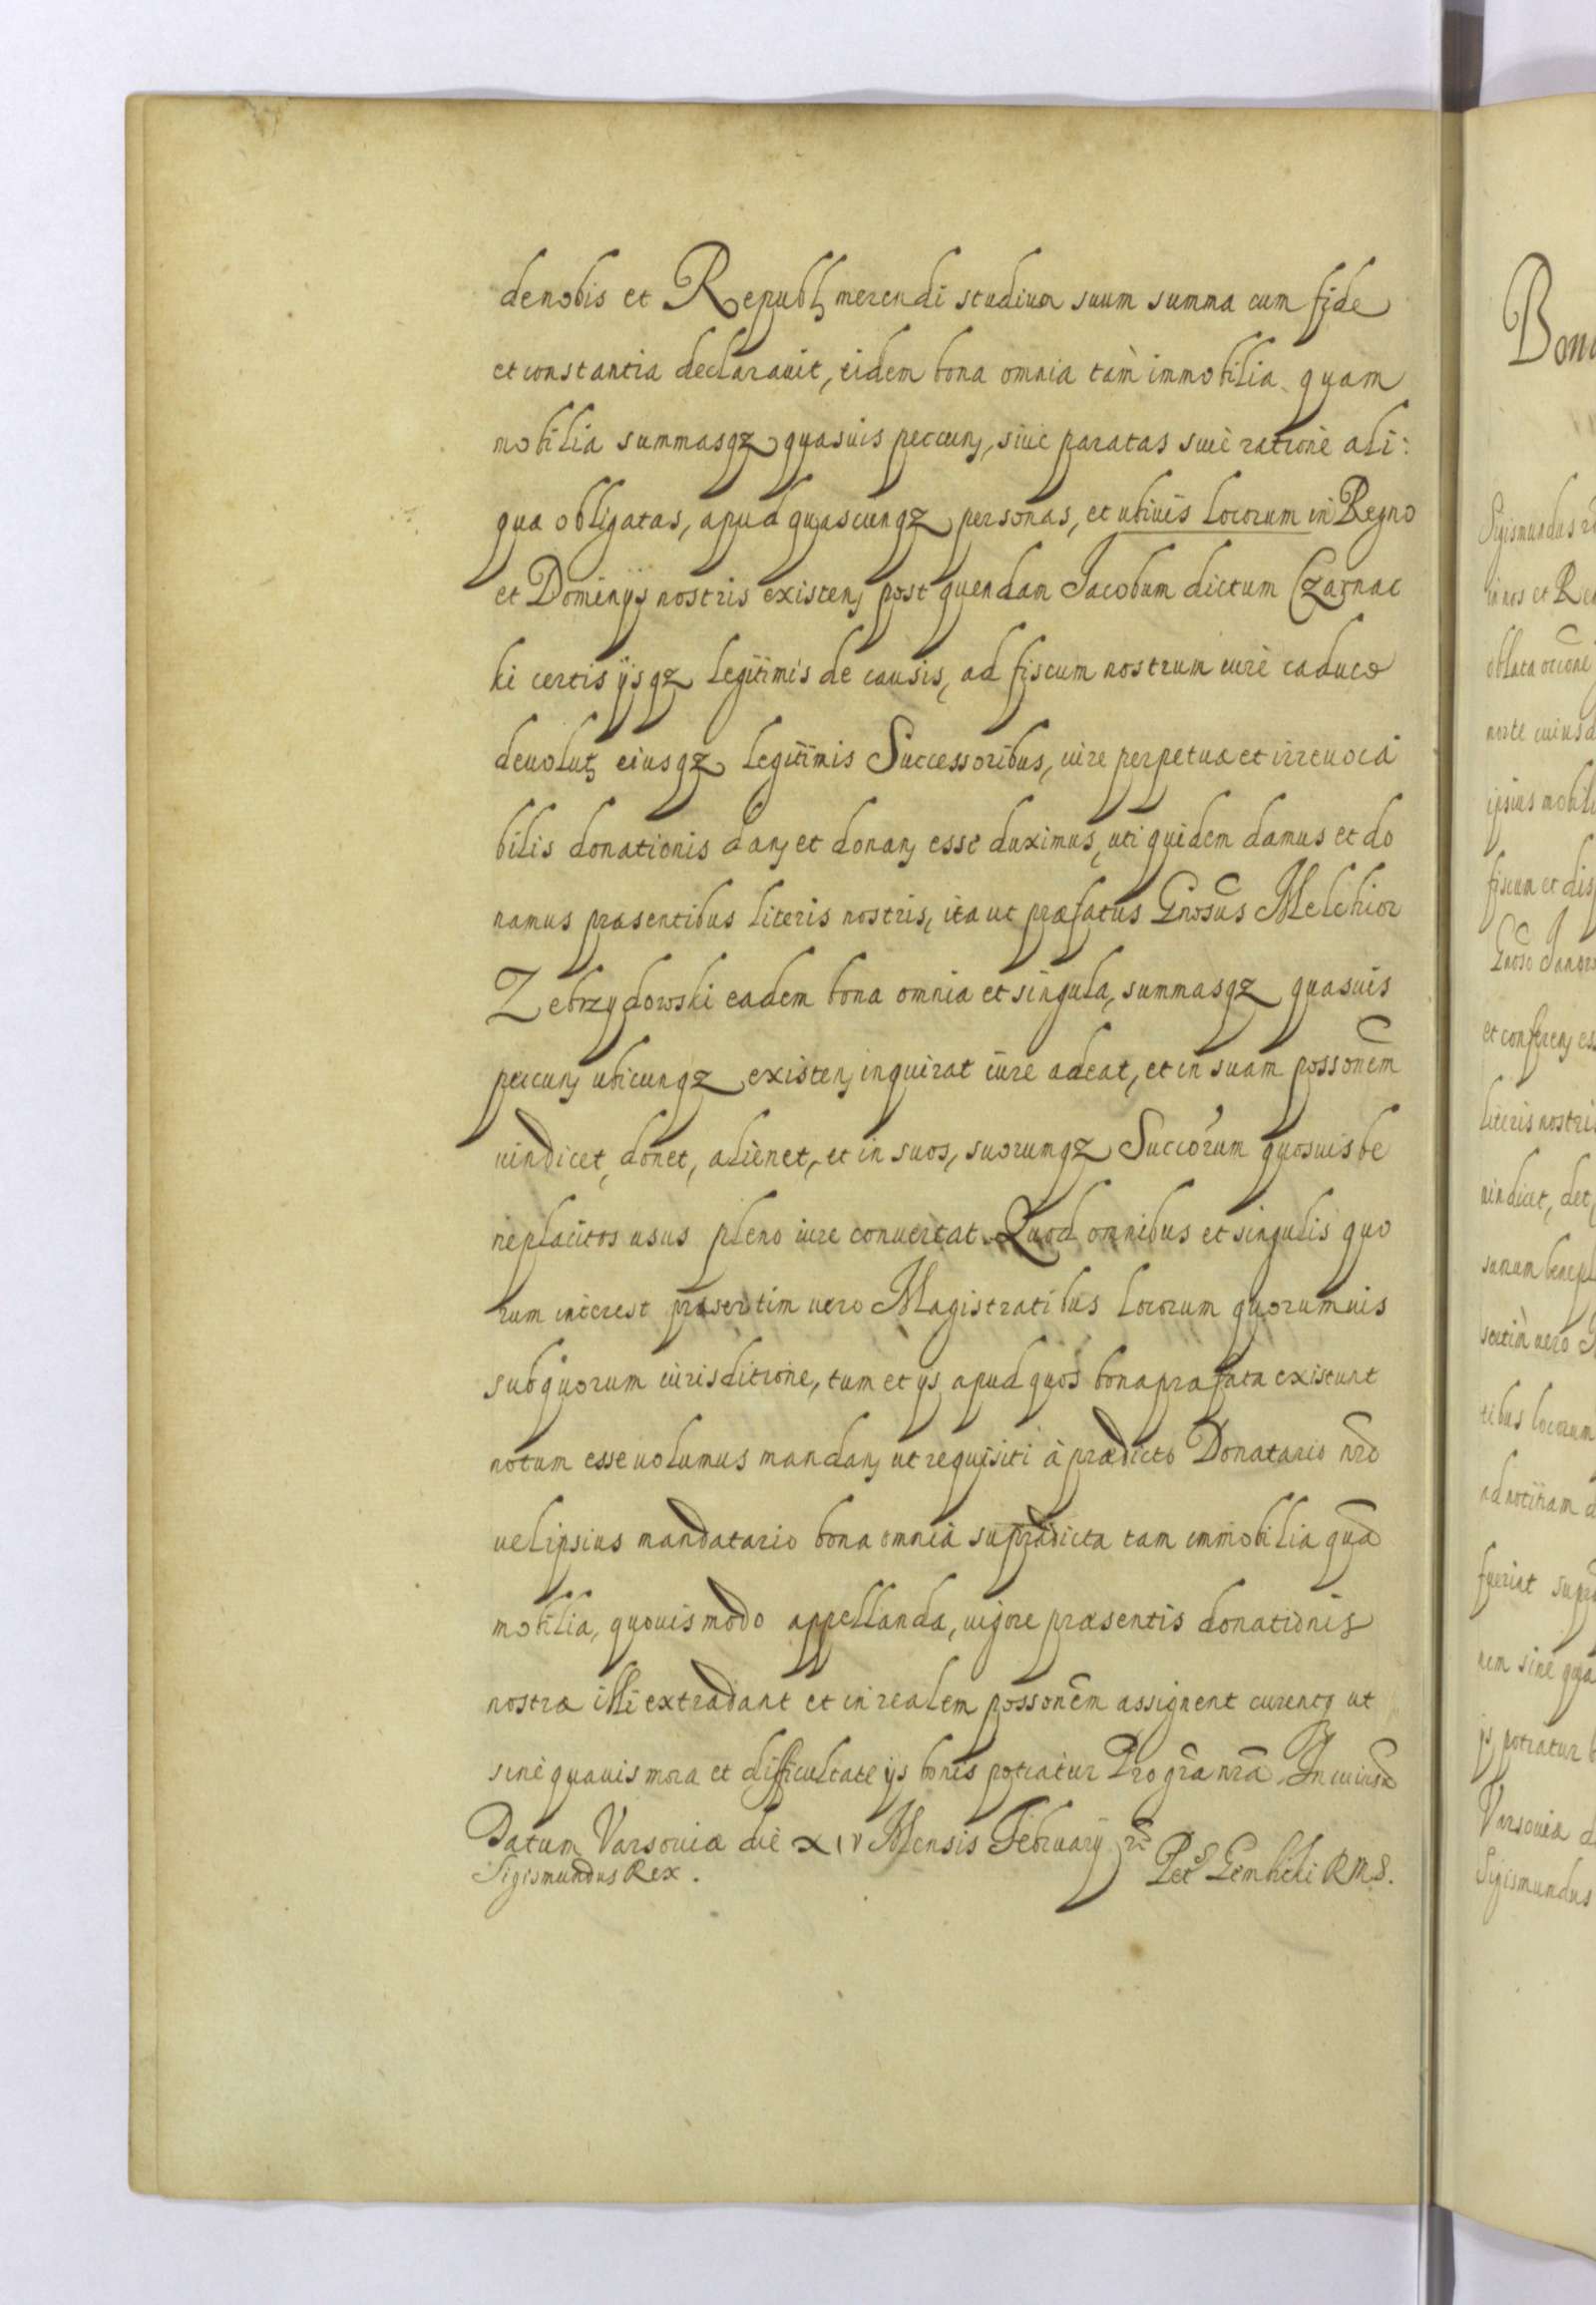 de nobis et Republ merendi studium suum summa cum fide
et constantia declarauit, eidem bona omnia tàm immobilia quam
mobilia summasqz quasuis peccun, siue paratas siue ratione ali:
qua obligatas, apud quascunqz personas, et ubiuis locorum in Regno
et Dominys nostris existen post quendam Jacobum dictum Czarnac
ki certis ijsqz legitimis de causis, ad fiscum nostrum iure caduco
deuolut eiusqz legitimis Successoribus, iure perpetuæ et irreuoca
bilis donationis dan et donan esse duximus, uti quidem damus et do
namus præsentibus literis nostris, ita ut præfatus Gnosus Melchior
Zebrzydowski eadem bona omnia et singula, summasqz quasuis
peccun ubicunqz existen inquirat iure adeat, et in suam possonem
uindicet, donet, alienet, et in suos, suorumqz Succorum quosuis be
neplacitos usus pleno iure conuertat. Quod omnibus et singulis quo
rum interest præsertim uero Magistratibus locorum quorumuis
sub quorum iurisditione, tum et ijs apud quos bona præfata existunt
notum esse uolumus mandan ut requisiti à prædicto Donatario nro
uel ipsius mandatario bona omnia supradicta tam immobilia qua
mobilia, quouis modo appellanda, uigore præsentis donationis
nostræ illi extradant et in realem possonem assignent curentqz ut
sine quauis mora et difficultate ijs bonis potiatur Pro gra nra In cuius
Datum Varsouiæ die XIV Mensis February
Sigismundus Rex. Pet Gembicki R M S.
Bon
Sigismundus
in nos et Re
oblata
morte cuius
ipsius mobil
fiscum et dis
Gnoso Jano
et conferen es
literis nostri
uindicet, det,
suorum benepl
uero
tibus locorum
ad notitiam
fuerint supr
nem sine qua
js potiatur b
Varsouiæ d
Sigismundus